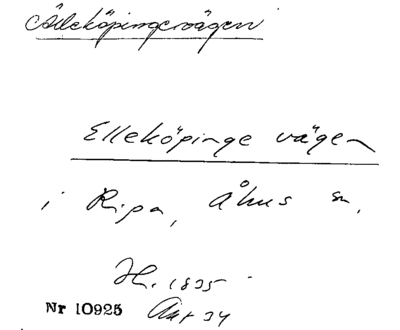 Älleköpingevägen
Elleköpinge vägen
i Ripa, Åhus sn.
H. 1835
Nr 10925 Akt 34